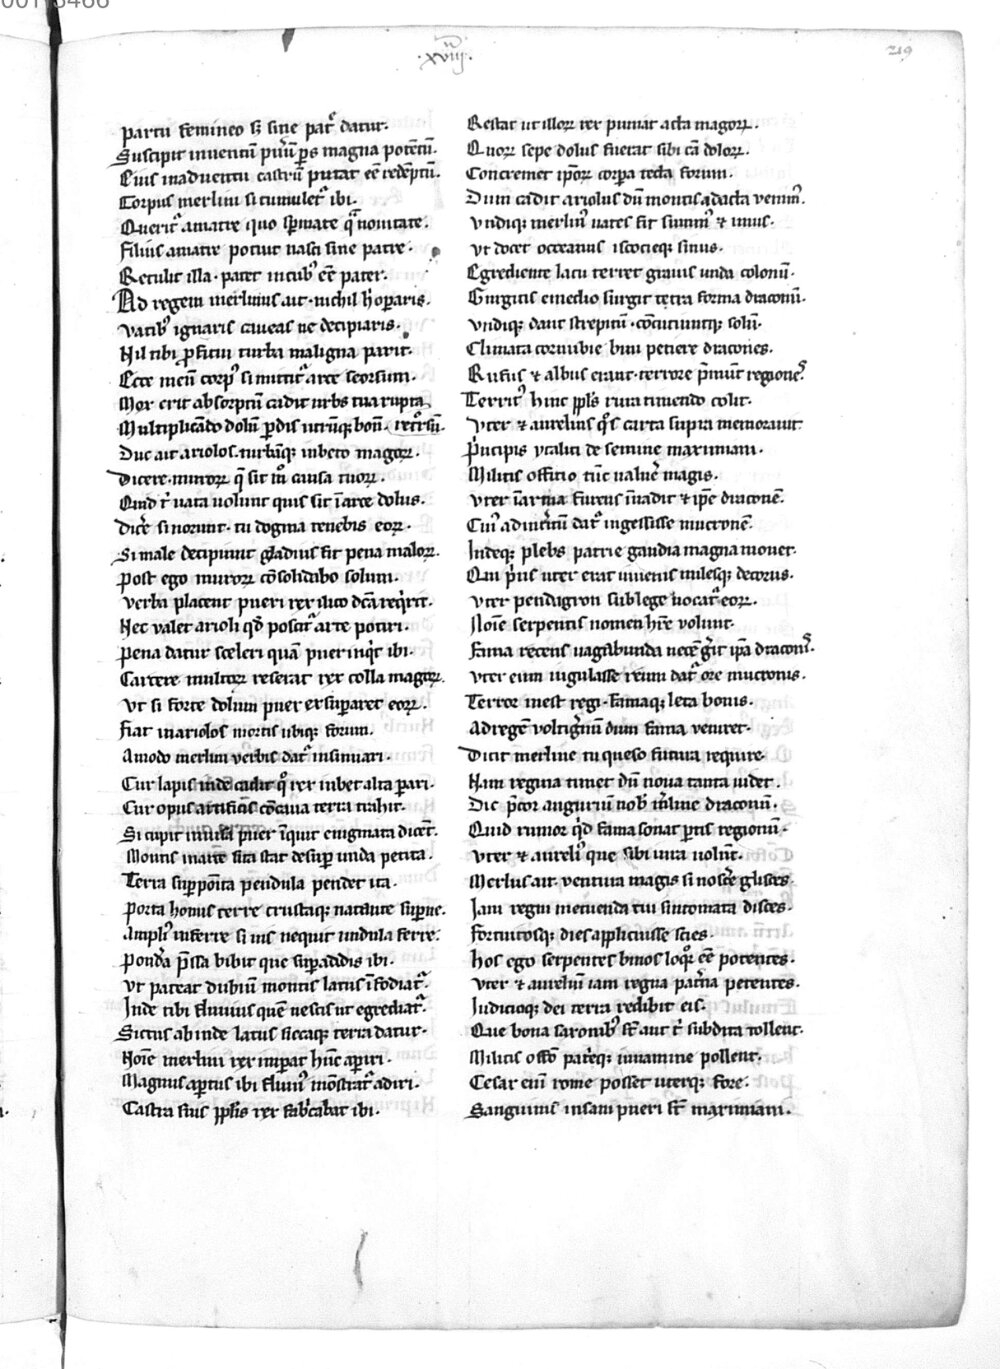 ·xviij·
219
partu femineo sꝫ sine patre datur·
Suscipit inuentum puerum pars magna potentum·
Eius inaduentu castrum putat esse redemptum·
Corpus merlini si tumuletur ibi·
Queritur amatre quo spermate quam nouitate·
Filius amatre potuit nasci sine patre·
Retulit illa· patet incubus esse pater·
Ad regem merlinus ait· nichil hoc paris·
Vatibus ignaris caueas ne decipiaris·
Nil tibi proficui turba maligna parit·
Ecce meum corpus si mittitur arce seorsum·
Mox erit absorptum cadit urbs tua rupta retrorsum·
Multiplicando dolum perdis utrumque bonum·
Duc ait ariolos· turbamque iubeto magorum·
Dicere· murorum que sit modo causa tuorum·
Quid tibi uata uolunt quis sit in arce dolus·
Dicere si norunt· tu dogma tenebis eorum·
Si male decipiunt gladius fit pena malorum·
Post ego murorum consolidabo solum·
Verba placent pueri rex ilico dicta requirit·
Nec ualet arioli quod poscitur arte potiri·
Pena datur sceleri quam puer inquit ibi·
Carcere multorum reserat rex colla magorum·
Vt si forte dolum puer exsuperaret eorum·
Fiat inariolos mortis ubique forum·
Amodo merlini uerbis datur insinuari·
Cur lapis inde cadit quem rex iubet alta parari·
Cur opus artificum concaua terra trahit·
Si cupit puer inquit enigmata dicent·
Montis inarce sita stat desuper unda petita·
Terra supposita pendula pendet ita·
Porta honus terre crustaque natante superne·
Amplius inferre si uis nequit undula ferre·
Pondera pressa bibit que superaddis ibi·
Vt pateat dubium montis latus infodiatur·
Inde tibi fluuius quem nescis ut egrediatur·
Siccus abinde lacus siccaque terra datur·
Nomine merlini rex imperat hunc aperiri·
Magnus apertus ibi fluuius monstratur adiri·
Castra suis populis rex fabricabat ibi·
Restat ut illorum rex puniat acta magorum·
Quorum sepe dolus fuerat sibi causa dolorum·
Concremet ipsorum corpora tecta forum·
Dum cadit ariolus dum montis adacta uenimus·
Vndique merlinus uates fit summus et unus·
Vt docet occeanus iscocieque sinus·
Egrediente lacu terret grauis unda colonum·
Gurgitis emedio surgit tetra forma draconum·
Vndique dant strepitum· concutiuntque solum·
Climata cornubie bini petiere dracones·
Rufus et albus erant· terrore premunt regiones·
Territus hinc populus rura timendo colit·
Vter et aurelius quos carta supra memorauit·
Principis ytalici de semine maximiani·
Militis officio tunc ualuere magis·
Vter inarma furens inuadit et ipse draconem·
Cuius aduentum datur ingessisse mucronem·
Indeque plebs patrie gaudia magna mouet·
Qui prius uter erat iuuenis milesque decorus·
Vter pendigron sublege uocatur eorum·
Nomine serpentis nomen habere uolunt·
Fama recens uagabunda necem gerit ipsa draconis·
Vter eum iugulasse reum datur ore mucronis·
Terror inest regi· famaque leta bonis·
Adregem uoltigernum dum fama ueniret·
Dicit merline tu queso futura require·
Nam regina timet dum noua tanta uidet·
Dic precor augurium nobis merline draconum·
Quid rumor quid fama sonat partis regionum·
Vter et aurelius que sibi iura uolunt·
Merlinus ait· uentura magis si noscere glisces·
Iam regni metuenda tui sintomata disces·
Fortuitosque dies applicuisse scies·
Hos ego serpentes binos loquor esse potentes·
Vter et aurelium iam regna paterna petentes·
Iudicioque dei terra redibit eis·
Que bona saxonibus sunt aut tibi subdita tollent·
Militis officio patrieque iuuamine pollent·
Cesar enim rome posset uterque fore·
Sanguinis insani pueri sunt maximiani·